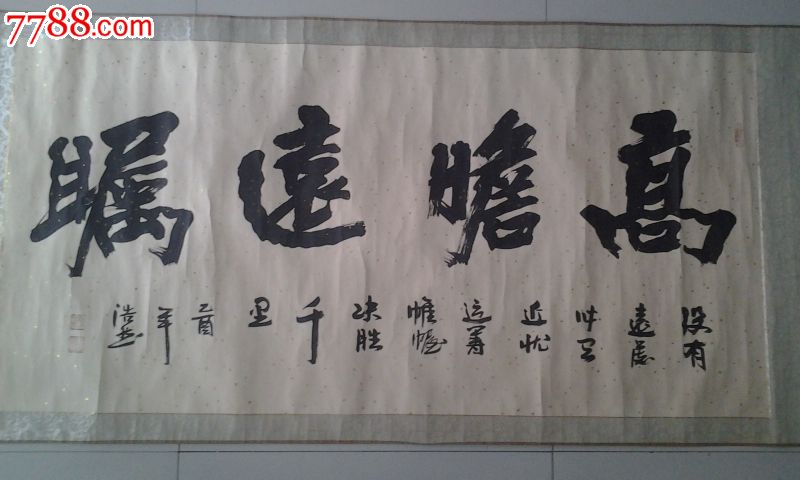 7788.com
高瞻遠矚
没有
远虑
近忧
运筹
帷幄
决胜
千
里
乙酉
年